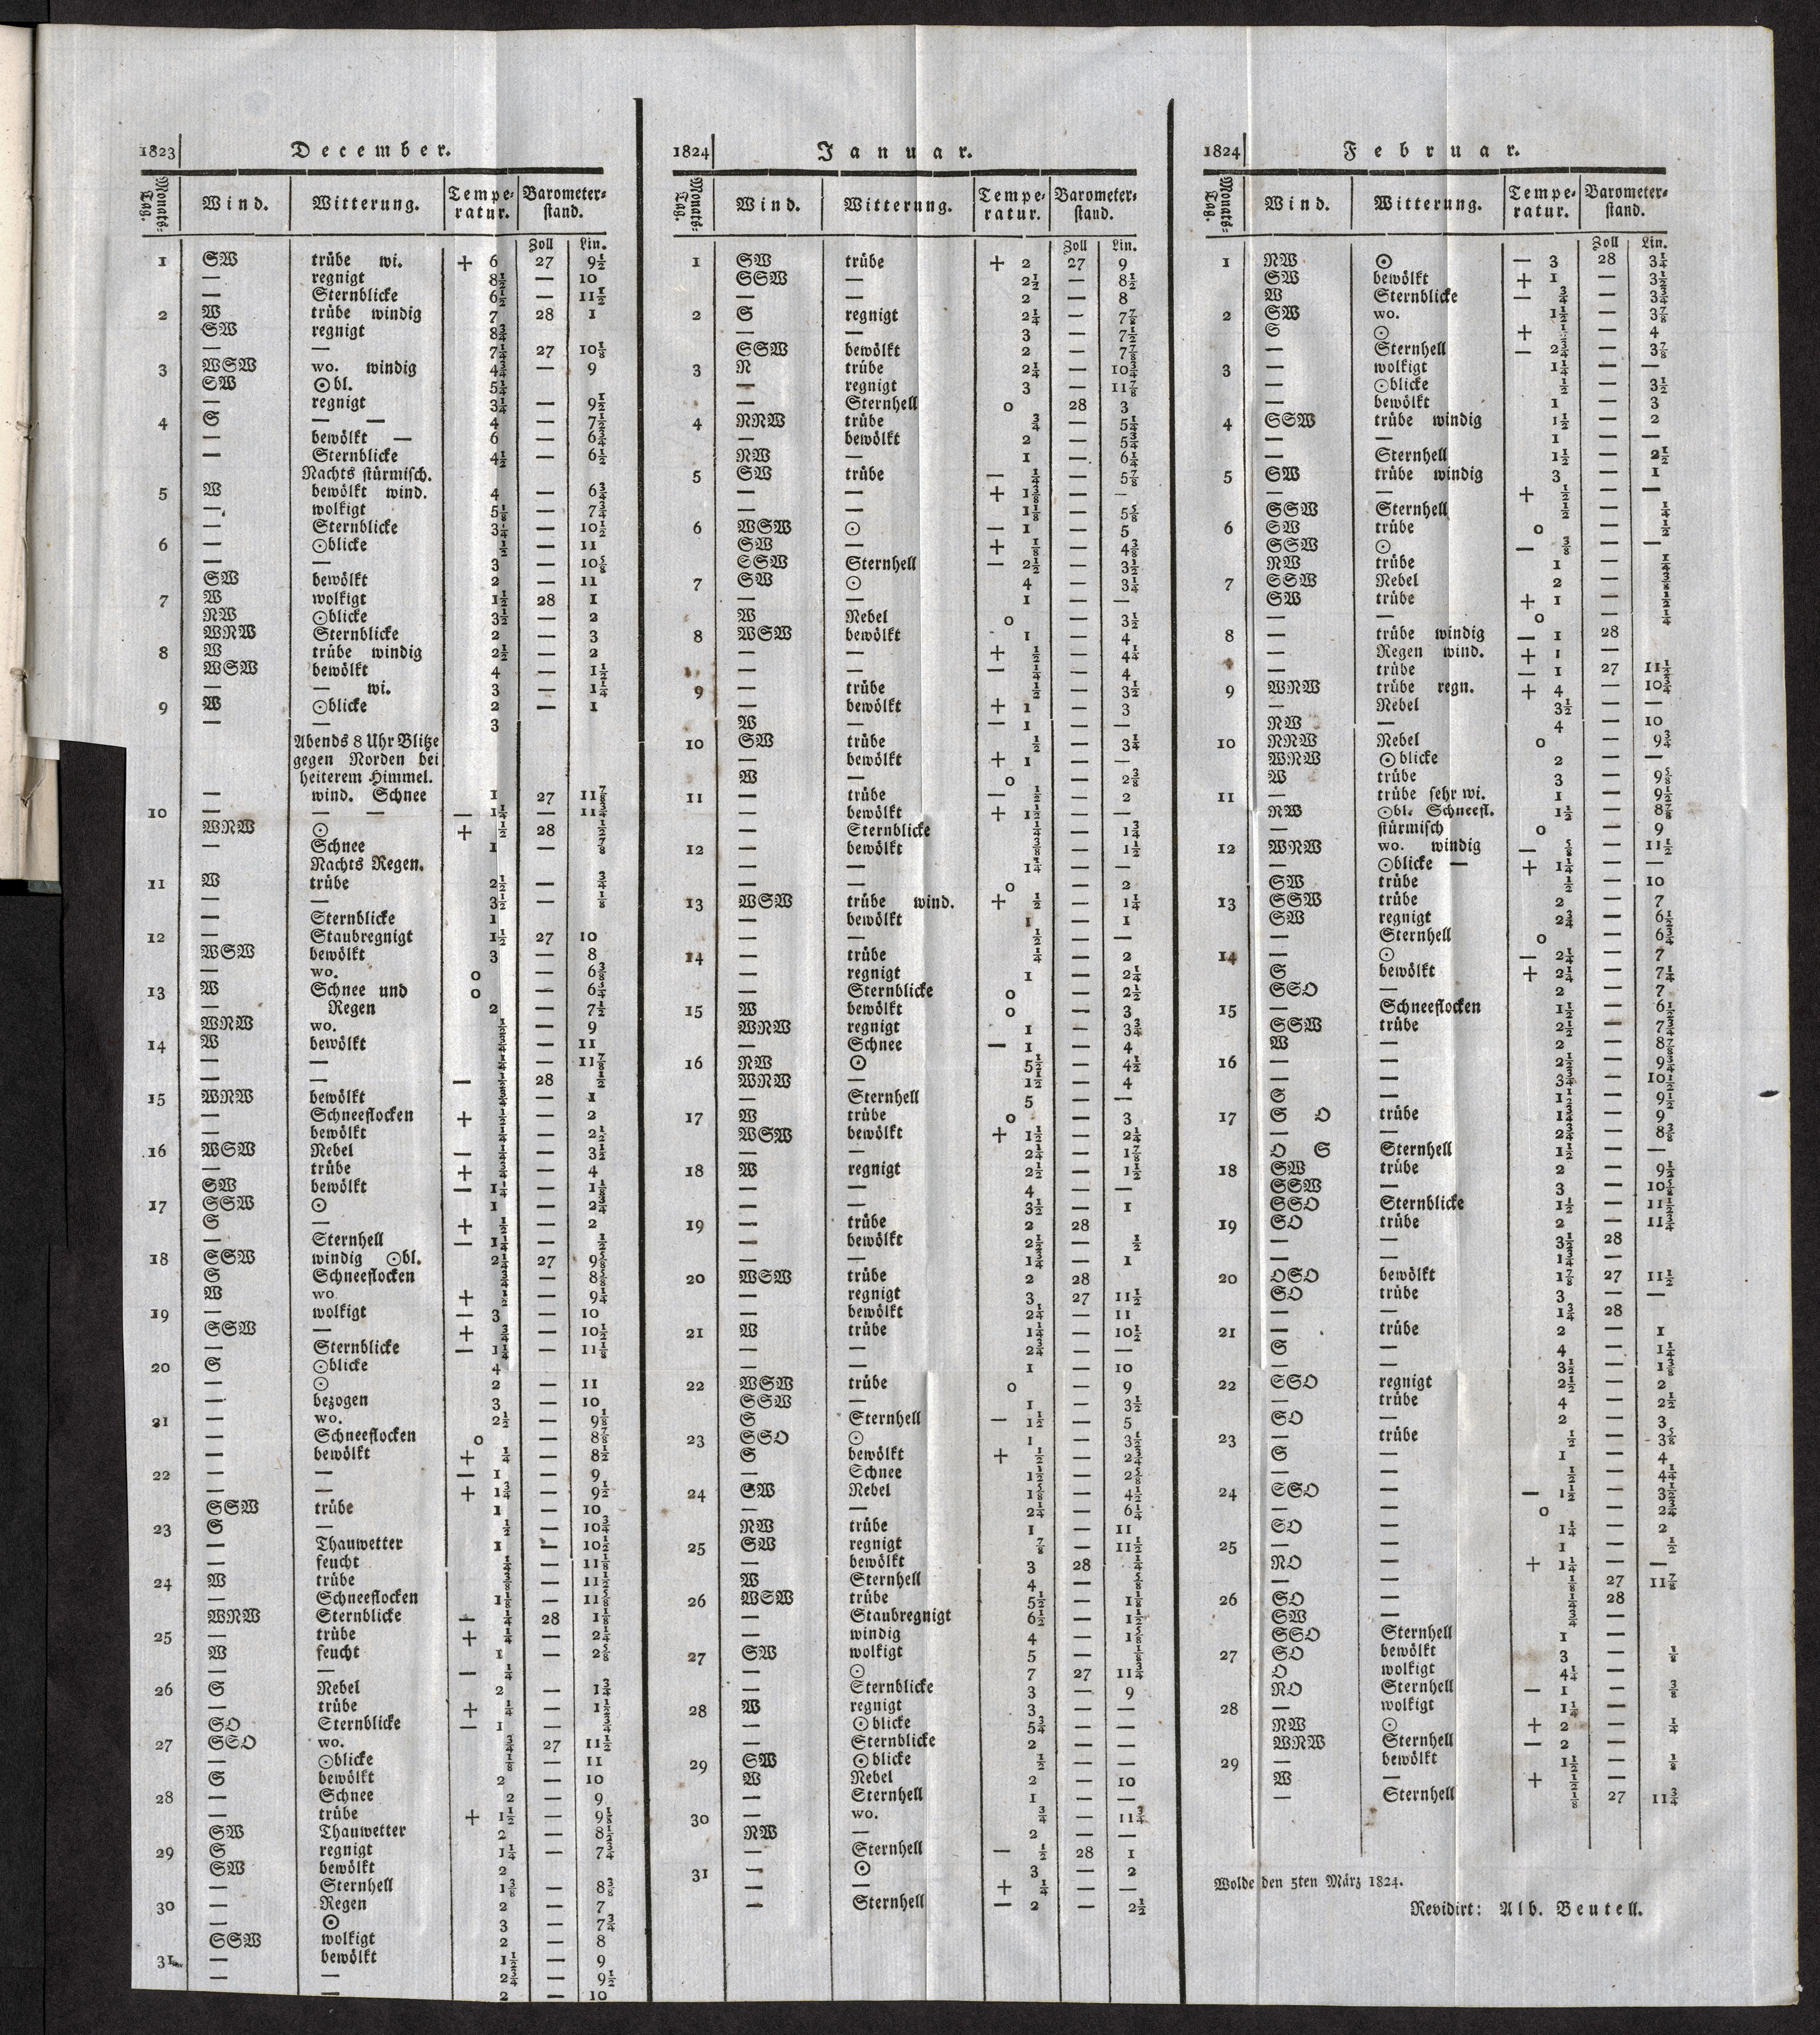 1823 December.
Monats-Tag. Wind. Witterung. Temperatur. Barometerstand.
Zoll Lin.
1 SW trübe wi. + 6 27 9½
— regnigt 8½ — 10
— Sternblicke 6½ — 11½
2 W trübe windig 7 28 1
SW regnigt 8¾
— — 7¼ 27 10⅛
3 WSW wo. windig 4¾ — 9
SW ☉bl. 5¼
— regnigt 3¼ — 9½
4 S — — 4 — 7½
— bewölkt — 6 — 6¾
— Sternblicke 4½ — 6½
Nachts stürmisch.
5 W bewölkt wind. 4 — 6¾
— wolkigt 5⅛ — 7¾
— Sternblicke 3¼ — 10½
6 — ☉blicke ½ — 11
— — 3 — 10⅝
SW bewölkt 2 — 11
7 W wolkigt 1½ 28 1
NW ☉blicke 3½ — 2
WNW Sternblicke 2 — 3
8 W trübe windig 2½ — 2
WSW bewölkt 4 — 1½
— — wi. 3 — 1¼
9 W ☉blicke 2 — 1
— — 3
Abends 8 Uhr Blitze
gegen Norden bei
heiterem Himmel.
— wind. Schnee 1 27 11⅞
10 — — — — 1¼ — 11¾
WNW ☉ + ½ 28 ½
— Schnee 1 — ⅞
Nachts Regen.
11 W trübe 2½ — ¾
— — 3½ — ⅛
— Sternblicke 1
12 — Staubregnigt 1½ 27 10
WSW bewölkt 3 — 8
— wo. 0 — 6⅜
13 W Schnee und 0 — 6¾
— Regen 2 — 7½
WNW wo. ½ — 9
14 W bewölkt ¾ — 11
— — ¼ — 11⅞
— — — ¼ 28 ½
15 WNW bewölkt ¾ — 1
— Schneeflocken + ½ — 2
— bewölkt ¼ — 2½
16 WSW Nebel — ¼ — 3½
— trübe + ¾ — 4
SW bewölkt — 1¼ — 1½
17 SSW ☉ 1 — 2¾
S — + ½ — 2
— Sternhell — 1¼ — ½
18 SSW windig ☉bl. 2¼ 27 9⅝
S Schneeflocken ¾ — 8⅝
W wo + ½ — 9¼
19 — wolkigt — 3 — 10
SSW — + ¾ — 10½
— Sternblicke — 1¼ — 11⅛
20 S ☉blicke 4
— ☉ 2 — 11
— bezogen 3 — 10
21 — wo. 2½ — 9⅛
— Schneeflocken 0 — 8⅞
— bewölkt + ¼ — 8½
22 — — — 1 — 9
— — + 1¾ — 9½
SSW trübe 1 — 10
23 S — ½ — 10¾
— Thauwetter 1 — 10½
— feucht ¼ — 11⅛
24 W trübe ⅜ — 11½
— Schneeflocken 1⅛ — 11⅝
WNW Sternblicke — ¼ 28 1⅛
25 — trübe + ¼ — 2¼
W feucht 1 — 2⅝
— — — ¼
26 S Nebel 2 — 1¾
— trübe + ¼ — 1½
SO Sternblicke — 1 — ¾
27 SSO wo. ¾ 27 11½
— ☉blicke ⅛ — 11
S bewölkt 2 — 10
28 — Schnee 2 — 9
— trübe + 1½ — 9⅛
SW Thauwetter 2 — 8½
29 S regnigt 1¼ — 7¾
SW bewölkt 2
— Sternhell 1⅜ — 8⅜
30 — Regen 2 — 7
— ☉ 3 — 7¾
SSW wolkigt 2 — 8
31 — bewölkt 1½ — 9
— — 2¾ — 9½
— 2 — 10
1824 Januar.
Monats-Tag. Wind. Witterung. Temperatur. Barometerstand.
Zoll Lin.
1 SW trübe + 2 27 9
SSW — 2½ — 8½
— — 2 — 8
2 S regnigt 2¼ — 7⅞
— — 3 — 7½
SSW bewölkt 2 — 7⅞
3 N trübe 2¼ — 10¾
— regnigt 3 — 11⅞
— Sternhell 0 28 3
4 NNW trübe ¾ — 5¼
— bewölkt 2 — 5¾
NW — 1 — 6¼
5 SW trübe — ¼ — 5⅞
— — + 1⅜ — —
— — 1⅛ — 5⅝
6 WSW ☉ — 1 — 5
SW — + ⅛ — 4⅜
SSW Sternhell — 2½ — 3½
7 SW ☉ 4 — 3¼
— — 1 — —
W Nebel 0 — 3½
8 WSW bewölkt 1 — 4
— — + ½ — 4¼
— — — ¼ — 4
9 — trübe ½ — 3½
— bewölkt + 1 — 3
W — — 1 — —
10 SW trübe ½ — 3¼
— bewölkt + 1 — —
W — 0 — 2⅜
11 — trübe — ½ — 2
— bewölkt + 1½ — —
— Sternblicke ¼ — 1¾
12 — bewölkt ⅜ — 1½
— — 1¼ — —
— — 0 — 2
13 WSW trübe wind. + ½ — 1¼
— bewölkt 1 — 1
— — ½ — —
14 — trübe ¼ — 2
— regnigt 1 — 2¼
— Sternblicke 0 — 2½
15 W bewölkt 0 — 3
WNW regnigt 1 — 3¾
— Schnee — 1 — 4
16 NW ☉ 5½ — 4½
WNW — 1½ — 4
— Sternhell 5 — —
17 W trübe 0 — 3
WSW bewölkt + 1½ — 2¼
— — 2¼ — 1⅞
18 W regnigt 2½ — 1½
— — 4 — —
— — 3½ — 1
19 — trübe 2 28
— bewölkt 2½ — ½
— — 1¾ — 1
20 WSW trübe 2 28
— regnigt 3 27 11½
— bewölkt 2¼ — 11
21 W trübe 1¼ — 10½
— — 2¾ — —
— — 1 — 10
22 WSW trübe 0 — 9
SSW — 1 — 3½
S Sternhell — 1½ — 5
23 SSO ☉ 1 — 3½
S bewölkt + ½ — 2¾
— Schnee 1½ — 2⅝
24 SW Nebel 1⅝ — 4½
— — 2¼ — 6¼
NW trübe 1 — 11
25 SW regnigt ⅞ — 11½
— bewölkt 3 28 ¼
W Sternhell 4 — ½
26 WSW trübe 5½ — 1⅛
— Staubregnigt 6½ — 1½
— windig 4 — 1⅝
27 SW wolkigt 5 — ⅛
— ☉ 7 27 11¾
— Sternblicke 3 — 9
28 W regnigt 3 — —
— ☉blicke 5¾ — —
— Sternblicke 2 — —
29 SW ☉blicke ½ — —
W Nebel 2 — 10
— Sternhell 1 — —
30 — wo. ¾ — 11¾
NW — 2 — —
— Sternhell — ½ 28 1
31 — ☉ 3 — 2
— — + ¼ — —
— Sternhell — 2 — 2½
1824 Februar.
Monats-Tag. Wind. Witterung. Temperatur. Barometerstand.
Zoll Lin.
1 NW ☉ — 3 28 3¼
SW bewölkt + 1 — 3½
W Sternblicke — ¾ — 3¾
2 SW wo. 1½ — 3⅞
S ☉ + ½ — 4
— Sternhell — 2¾ — 3⅞
3 — wolkigt 1¼ — —
— ☉blicke ½ — 3½
— bewölkt 1 — 3
4 SSW trübe windig 1½ — 2
— — 1 — —
— Sternhell 1½ — 2½
5 SW trübe windig 3 — 1
— — + ½ — —
SSW Sternhell ½ — ¼
6 SW trübe 0 — ½
SSW ☉ — ⅜ — —
NW trübe 1 — ¼
7 SSW Nebel 2 — ⅜
SW trübe + 1 — ½
— — 0 — ¼
8 — trübe windig — 1 28
— Regen wind. + 1 —
— trübe — 1 27 11½
9 WNW trübe regn. + 4 — 10¾
— Nebel 3½ — —
NW — 4 — 10
10 NNW Nebel 0 — 9¾
WNW ☉blicke 2 — —
W trübe 3 — 9⅝
11 — trübe sehr wi. 1 — 9½
NW ☉bl. Schneefl. 1½ — 8⅞
— stürmisch 0 — 9
12 WNW wo. windig — ⅝ — 11½
— ☉blicke — + 1¼ — —
SW trübe ½ — 10
13 SSW trübe 2 — 7
SW regnigt 2¾ — 6½
— Sternhell 0 — 6¾
14 — ☉ — 2¼ — 7
S bewölkt + 2¼ — 7¼
SSO — 2 — 7
15 — Schneeflocken 1½ — 6½
SSW trübe 2½ — 7¾
W — 2 — 8⅞
16 — — 2½ — 9¾
— — 3¾ — 10½
S — 1½ — 9½
17 S O trübe 1¾ — 9
— — 2¾ — 8⅜
O S Sternhell 1½ — —
18 SW trübe 2 — 9½
SSW — 3 — 10⅝
SSO Sternblicke 1½ — 11½
19 SO trübe 2 — 11¾
— — 3½ 28
— — 1¾ —
20 OSO bewölkt 1⅞ 27 11½
SO trübe 3 — —
— — 1¾ 28
21 — trübe 2 — 1
S — 4 — 1¼
— — 3½ — 1¾
22 SSO regnigt 2½ — 2
— trübe 4 — 2½
SO — 2 — 3
23 — trübe ½ — 3⅝
S — 1 — 4
— — ½ — 4¼
24 SSO — — 1½ — 3½
— — 0 — 2¾
SO — 1¼ — 2
25 — — 1 — ½
NO — + 1¼ — —
— — ⅛ 27 11⅞
26 SO — ¼ 28
SW — ¾ —
SSO Sternhell 1 —
27 SO bewölkt 3 — ⅛
O wolkigt 4¼ —
NO Sternhell — 1 — ⅜
28 — wolkigt 1¼ —
NW ☉ + 2 — ¼
WNW Sternhell — 2 —
29 — bewölkt 1½ — ⅛
W — + ½ —
— Sternhell ⅛ 27 11¾
Wolde den 5ten März 1824.
Revidirt: Alb. Beutell.